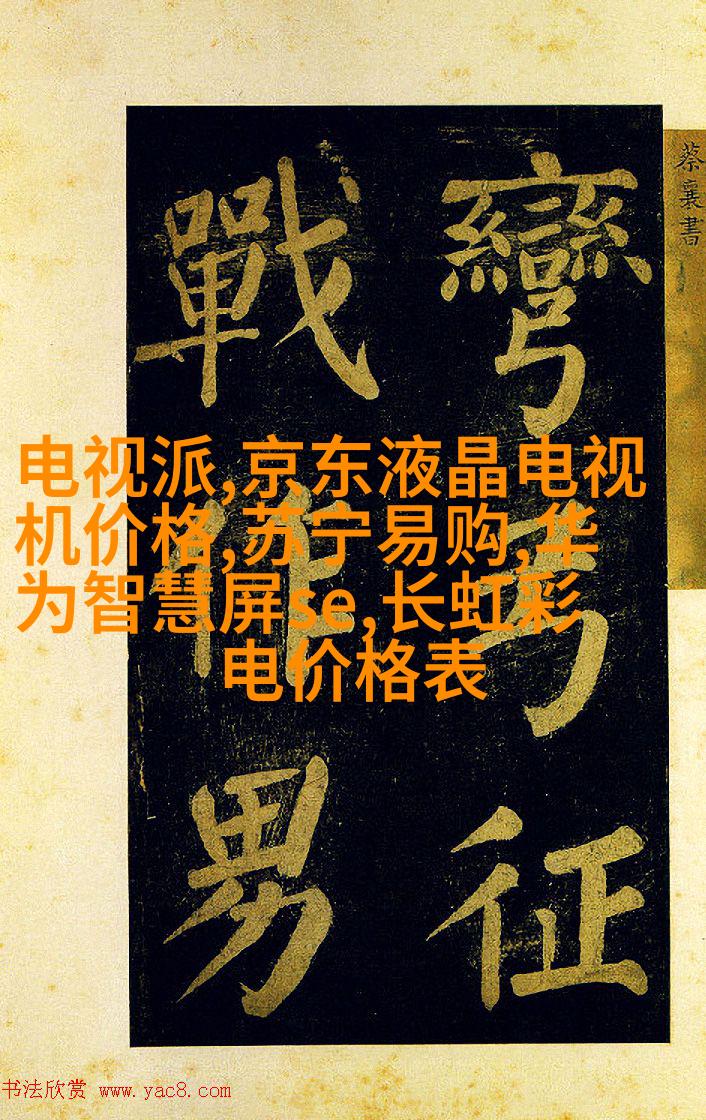 蔡襄書
彎弓征
戰作男
电视派,京东液晶电视
机价格,苏宁易购,华
为智慧屏se,长虹彩
电价格表
书法欣赏 www.yac8.com